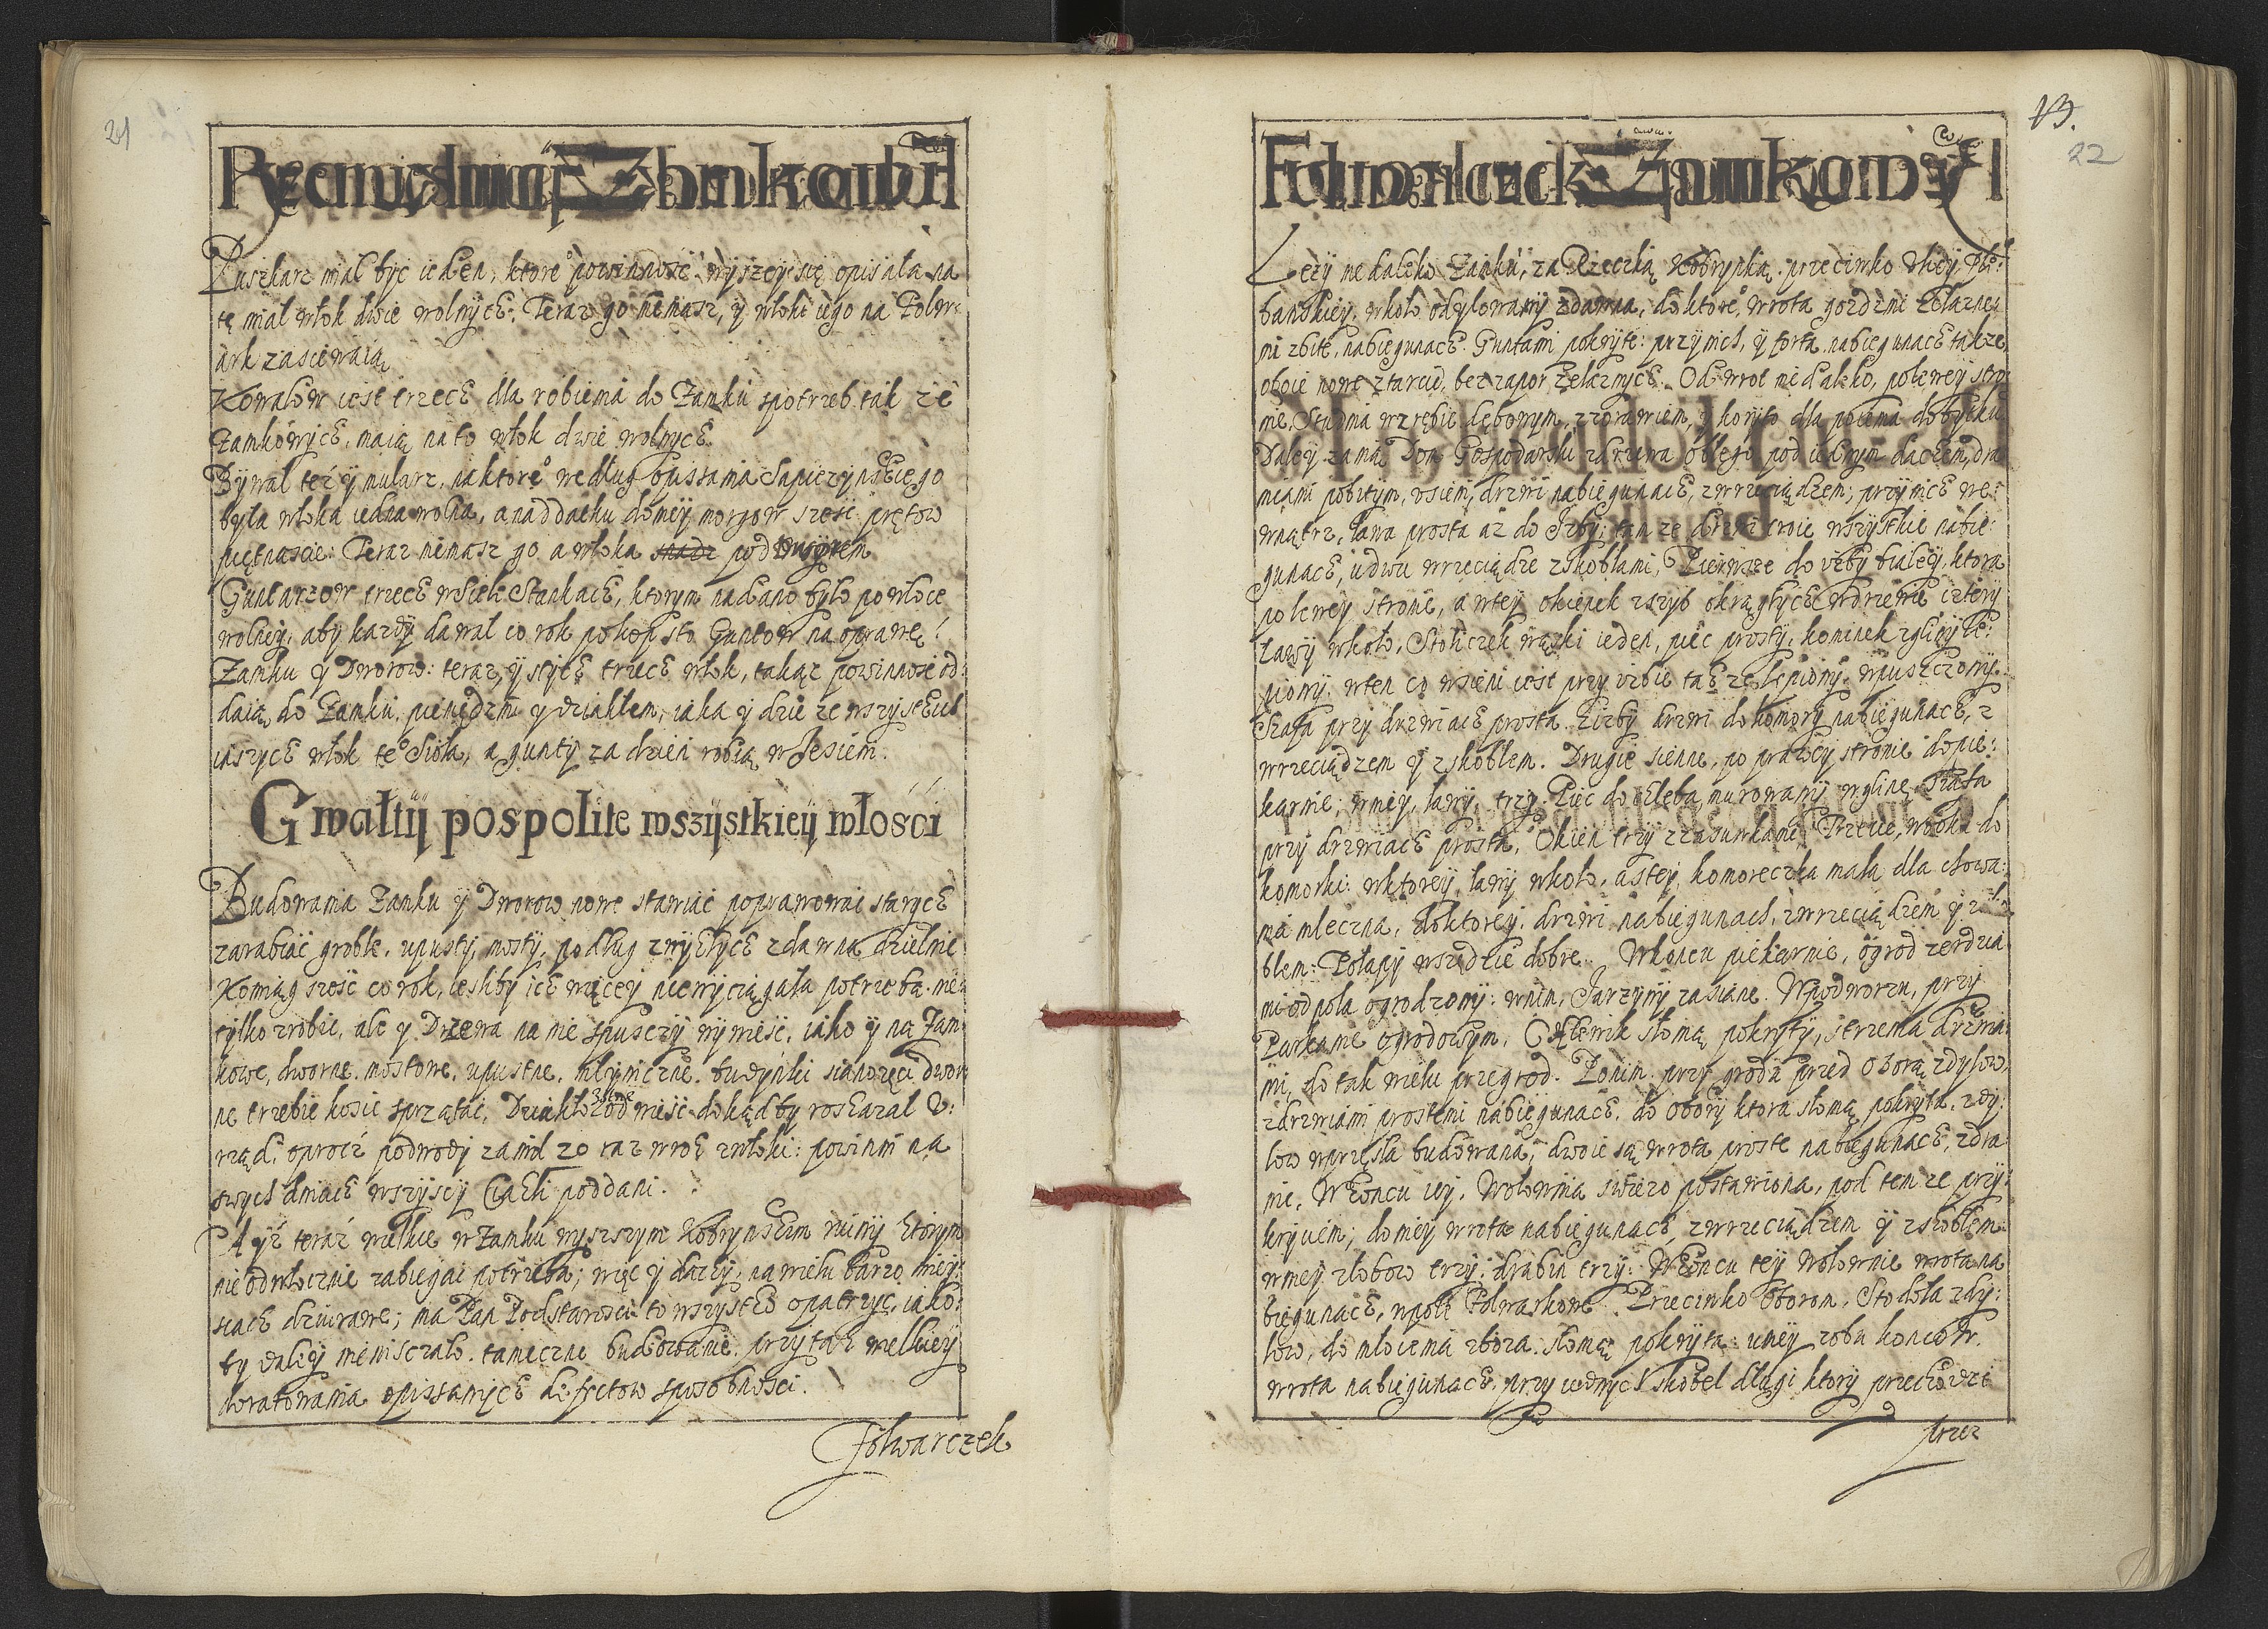 21
Rzemięślnicy Zamkowi
Puszkarz miał być ieden, ktore° powinność wyszey się opisała na
tę miał włok dwie wolnych. Teraz go niemasz, y włoki iego na Folw:
ark zasiewaią
Kowalow iest trzech dla robienia do Zamku potrzeb tak że
Zamkowych, maią na to włok dwie wolnych.
Bywał też y mularz, na ktore° według opissania Sapieżyńskiego
była włoka iedna wolna, a naddatku do niey morgow sześć prętow
piętnaście: Teraz niemasz go a włoka pod
Guntarzow trzech w Siele Stankach, ktorym nadano było po włoce
wolney, aby każdy dawał co rok po kop sto Guntow na oprawę
Zamku y Dworow: teraz y s tych trzech włok, takąż powinność od:
daią do Zamku, pieniędzmi y dziakłem, iaka y dzie ze wszystkich
inszych włok te° Sioła, a gunty za dzień robią w Jesieni.
Gwałty pospolite wszystkiey włości
Budowania Zamku y Dworow nowe stawiać poprawować starych
zarabiać groble, upusty, mosty, podług zwykłych zdawna dzielnic
Komiąg sześć co rok, ieśliby ich więcey nie wyciągała potrzeba. nie
tylko zrobić, ale y Drzewa na nie spuszczy wywieść, iako y na Zam
kowe, dworne, mostowe, upustne, młyniczne, budynki sianożęci dwor
ne trzebić kosić sprzątać, Dziakło odwieść dokąd by roskazał U:
rząd. oprocz podwody za mil 20 raz w rok z włoki: powinni na
swych dniach wszyscy Ciahli poddani.
A yż teraz wielkie w Zamku wyszszym Kobrynskim ruiny ktorym
nieodwłocznie zabiegać potrzeba; więc y dachy na wielu barzo miey:
scach dziurawe; ma Pan Podstarosci to wszystko opatrzyć, iako:
by daley nie niszczało tameczne budowanie przy tak wielkiey
do ratowania opissanych defectow sposobności.
Folwarczek
13.
22
Folwarczek Zamkowy
Leży nie daleko Zamku, za Rzeczką Kobrynką przeciwko Ulicy Ple:
banskiey, wkoło odylowany zdawna, do ktore° wrota gozdzmi żelazne:
mi zbite, na biegunach Guntami pokryte: przy nich, y forta na biegunach także
oboie nowe z tarcic, bez zapor żelaznych. Od wrot niedaleko, po lewey stro
nie, Studnia w zrębie dębowym, z żorawiem, y koryto dla poienia dobytku
Daley zamą Dom Gospodarski z drzewa obłego pod iednym dachem, dra
niami pobitym, v sieni drzwi na biegunach, z wrzeciądzem; przy nich we:
wnątrz, ława prosta aż do Izby; tamże drzwi troie wszystkie na bie:
gunach, u dwu wrzeciądze z skoblami, Pierwsze do izby białey, ktora
po lewey stronie, a w tey okienek z szyb okrągłych w drzewie cztery
Ławy wkoło, Stoliczek wązki ieden, piec prosty, kominek z gliny le:
piony, w ten co w sieni iest przy izbie także lepiony wpuszczony.
Szafa przy drzwiach prosta. Z izby drzwi do komory na biegunach, z
wrzeciądzem y z skoblem. Drugie sienne, po prawey stronie do pie:
karnie; w niey, ławy trzy. Piec do chleba, murowany w glinę. Szafa
przy drzwiach prosta, Okien trzy z zasuwkami. Trzecie, wboku do
komorki: w ktorey ławy wkoło, a s tey, komoreczka mała dla chowa:
nia mleczna, do ktorey drzwi na biegunach, z wrzeciądzem y z sko
blem: Połapy wszędzie dobre. W koncu piekarnie, ogrod żerdzia
mi od pola ogrodzony: w nim, Jarzyny zasiane. W podworzu, przy
Parkanie ogrodowym, Chlewik słomą pokryty, s trzema drzwia:
mi, do tak wielu przegrod. Po nim przy grodź przed Oborą z dylow,
z drzwiami prostemi na biegunach, do obory ktora słomą pokryta, z dy:
low w przęsła budowana; dwoie są wrota proste na biegunach, z dra
nic. W koncu iey, Wołownia swieżo postawiona, pod temże przy:
kryciem; do niey wrota na biegunach, z wrzeciądzem y z skoblem.
w niey żłobow trzy: drabin trzy: W koncu tey Wołownie wrota na
biegunach, w pole Folwarkowe. Przeciwko Oborom, Stodoła z dy:
low, do młocenia zboża, słomą pokryta: u niey z obu koncow
wrota na biegunach; przy iednych skobel długi ktory przechodzi
przez